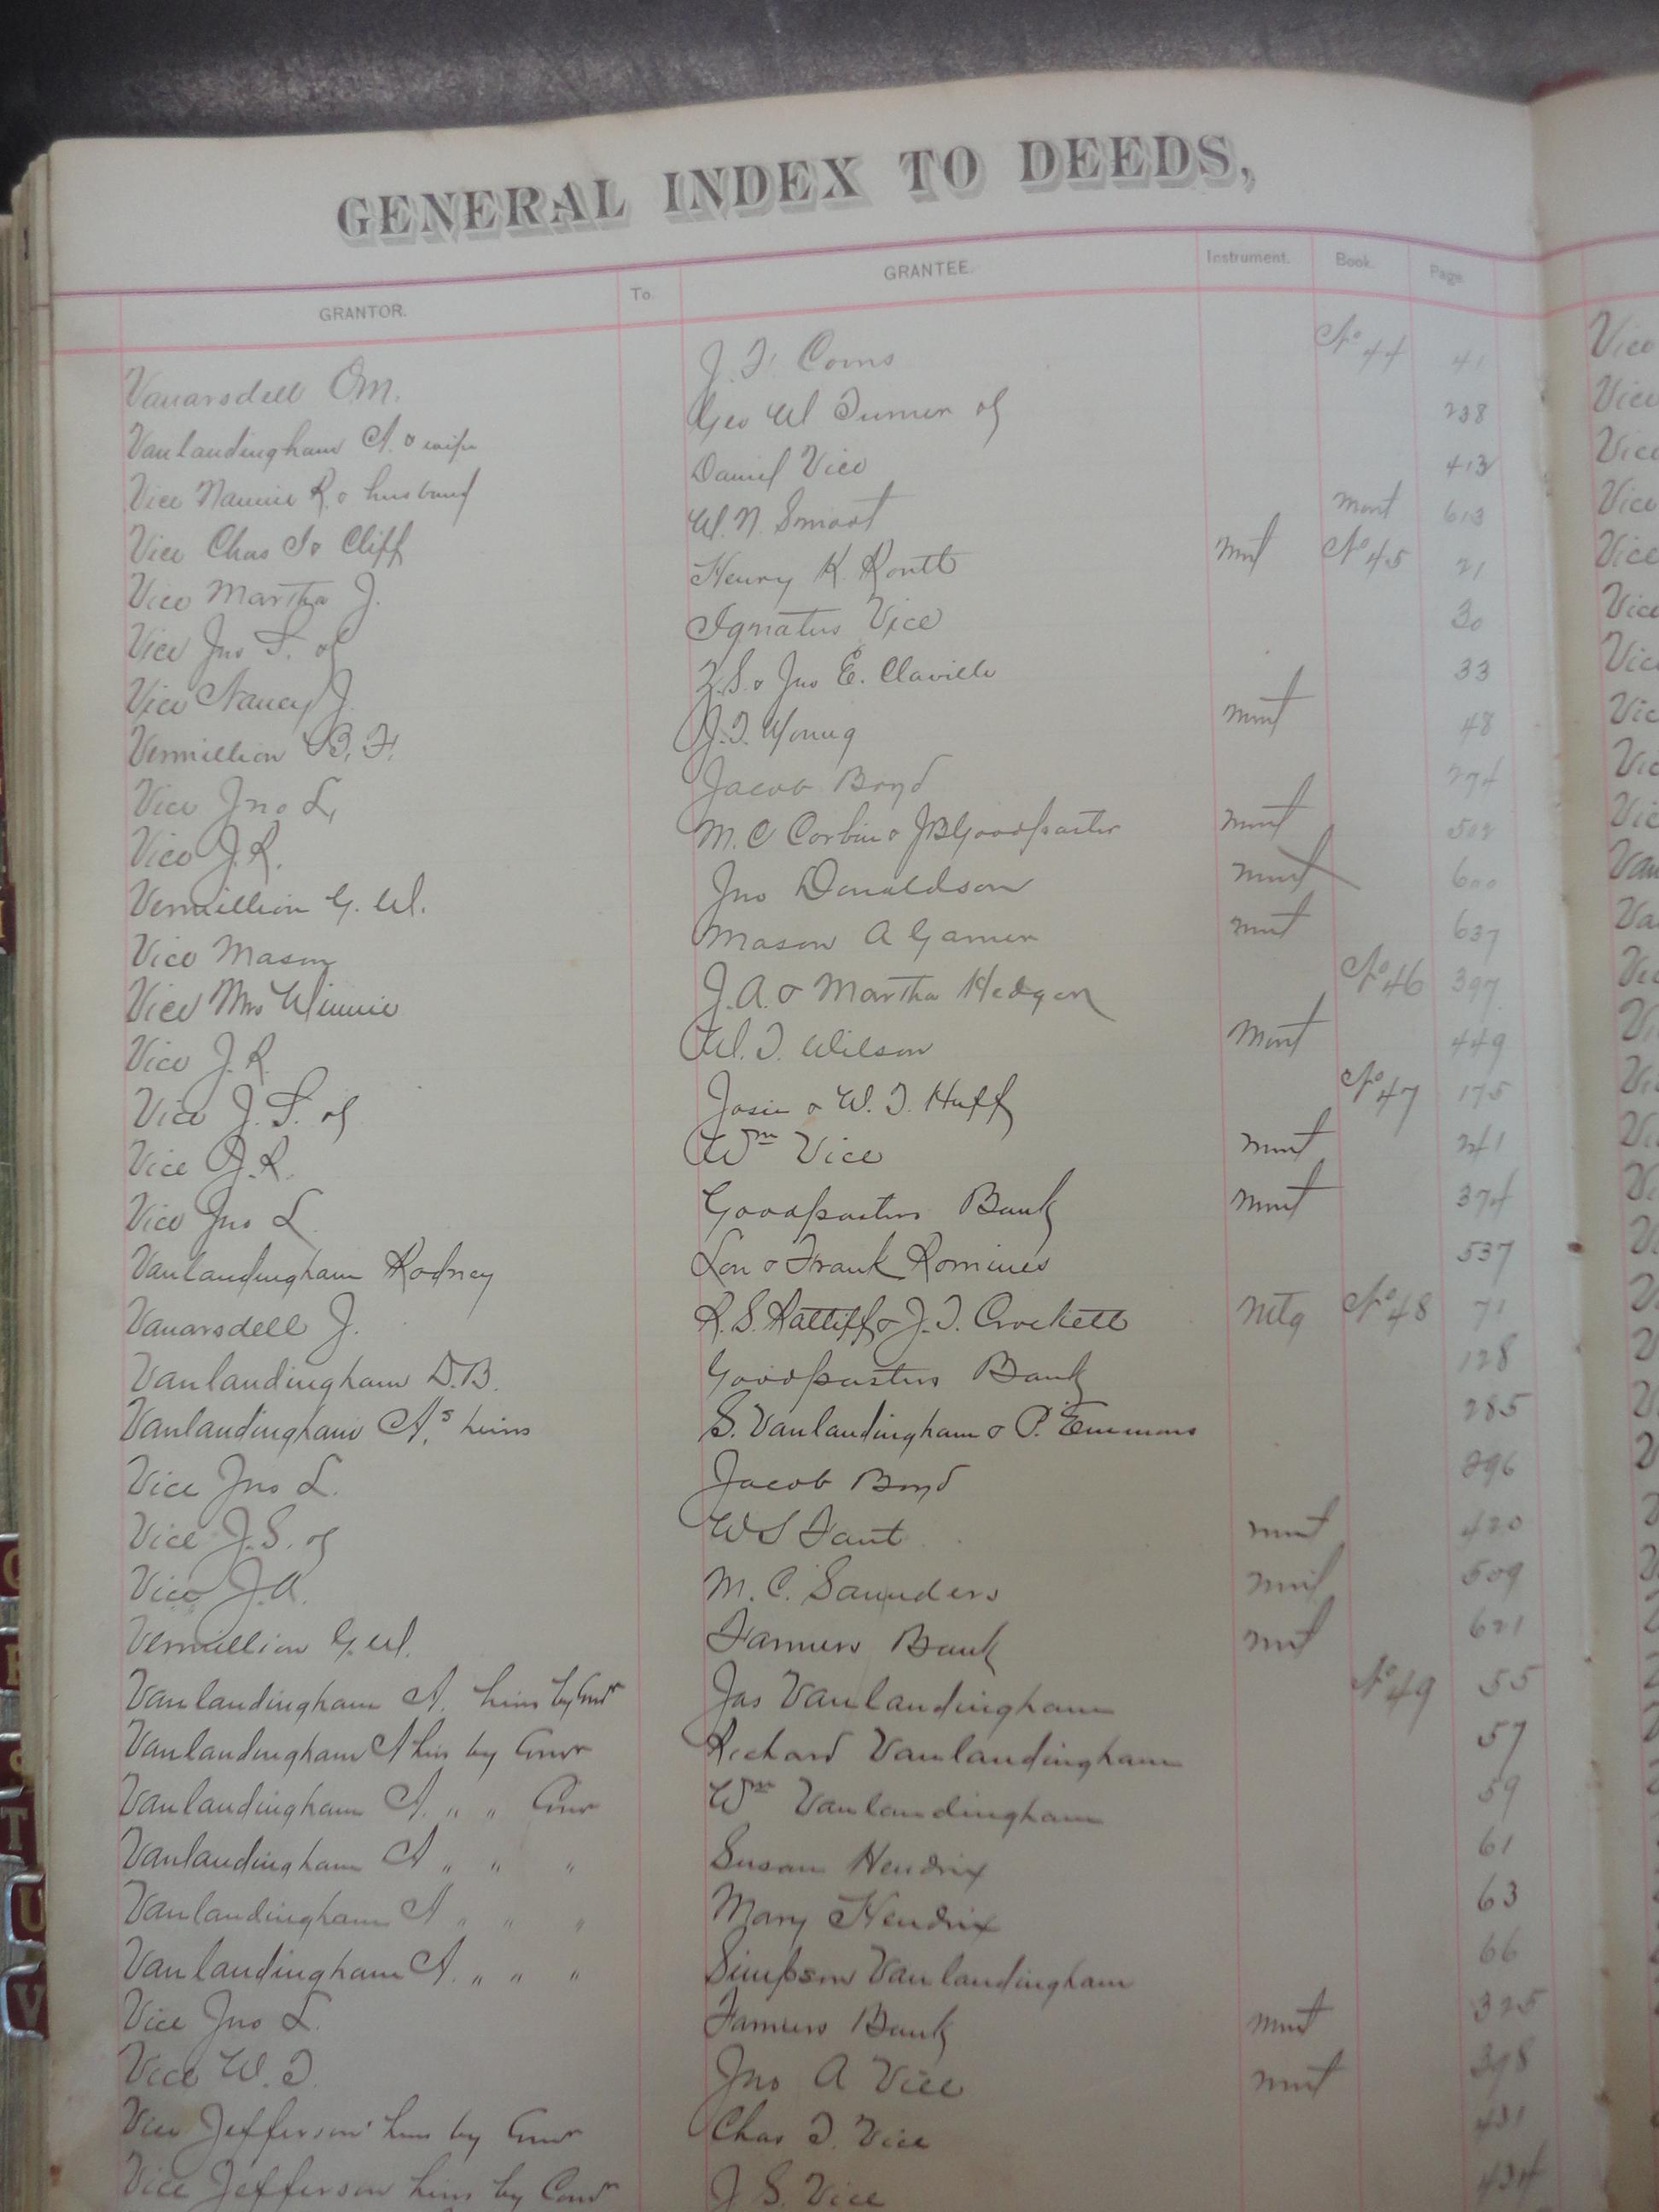 GENERAL INDEX TO DEEDS,
GRANTOR. To. GRANTEE. Instrument. Book. Page
Vanarsdell O.M. J. F. Coons No 44 41
Vanlandingham A. & wife Geo W Turner of 238
Vice Nannie R. & husband Daniel Vice 413
Vice Chas S & Cliff W. N. Smoot Mont 613
Vice Martha J. Henry K. Routt Mnt No 45 21
Vice Jno S. of Ignatus Vice 30
Vice Nancy J. & Jno E. Claville 33
Vermillion B. F. J. T. Young Mnt 48
Vice Jno L, Jacob Boyd 274
Vice J. R. M. C Corbin & J B Goodpaster Mnt 502
Vermillion G. W. Jno Donaldson Mnt 600
Vice Mason Mason A Garner Mnt 637
Vice Mrs Winnie J. A. & Martha Hedger No 46 397
Vice J. R. W. T. Wilson Mont 449
Vice J. S. of Josie & W. T. Huff No 47 175
Vice J. R. Wm Vice Mnt 241
Vice Jno L. Goodpasters Bank Mnt 374
Vanlandingham Rodney Lon & Frank Romines 537
Vanarsdell J. R. S. Ratliff & J. T. Crockett Mtg No 48 71
Vanlandingham D. B. Goodpasters Bank 128
Vanlandingham A.s heirs S. Vanlandingham & P. Emmons 285
Vice Jno L. Jacob Boyd 296
Vice J. S. of W S Fant Mnt 420
Vice J. A. M. C. Saunders Mnt 509
Vermillion G. W. Farmers Bank Mnt 621
Vanlandingham A. heirs by Comr Jas Vanlandingham No 49 55
Vanlandingham A heirs by Comr Richard Vanlandingham 57
Vanlandingham A. " " Comr Wm Vanlandingham 59
Vanlandingham A " " " Susan Hendrix 61
Vanlandingham A " " " Mary Hendrix 63
Vanlandingham A. " " " Simpson Vanlandingham 66
Vice Jno L. Farmers Bank Mnt 325
Vice W. T. Jno A Vice Mnt 398
Vice Jefferson heirs by Comr Chas T. Vice 431
Vice Jefferson heirs by Comr J S. Vice 434